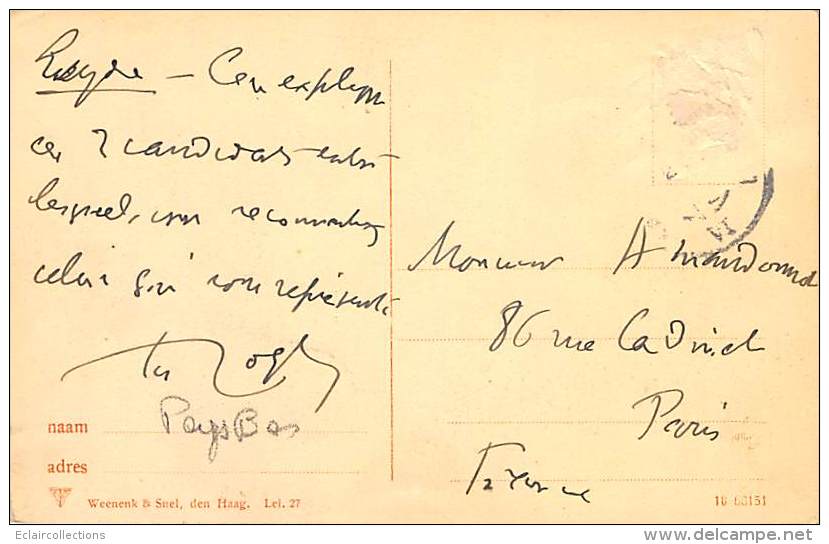 Leyde — Ces exemples
ces 2 candidats entre
lesquels, vous reconnaîtrez
celui qui vous représente
naam Pays Bas
adres
Weenenk & Snel, den Haag. Lei. 27
Monsieur A
86 rue Cardinet
Paris
France
10 63151
Eclaircollections
www.delcampe.net